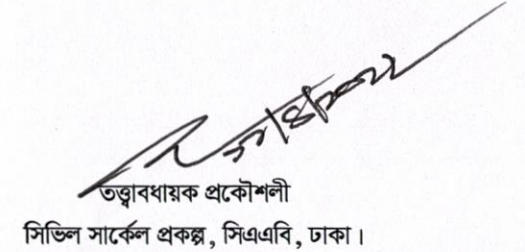 তত্ত্বাবধায়ক প্রকৌশলী
সিভিল সার্কেল প্রকল্প, সিএএবি, ঢাকা।